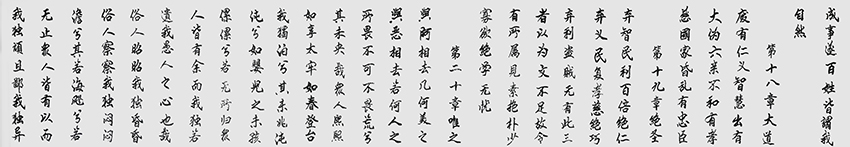 成事遂百姓皆謂我
自然
第十八章大道
廢有仁义智慧出有
大伪六亲不和有孝
慈國家昏乱有忠臣
第十九章绝圣
弃智民利百倍绝仁
弃义民复孝慈绝巧
弃利盗贼无有此三
者以为文不足故令
有所属見素抱朴少
寡欲绝学无忧
第二十章唯之
與阿相去几何美之
與恶相去若何人之
所畏不可不畏荒兮
其未央哉衆人熙熙
如享太牢如春登台
我獨泊兮其未兆沌
沌兮如婴兒之未孩
傫傫兮若无所归衆
人皆有余而我独若
遗我愚人之心也哉
俗人昭昭我独昏昏
俗人察察我独闷闷
澹兮其若海飓兮若
无止衆人皆有以而
我独頑且鄙我独异